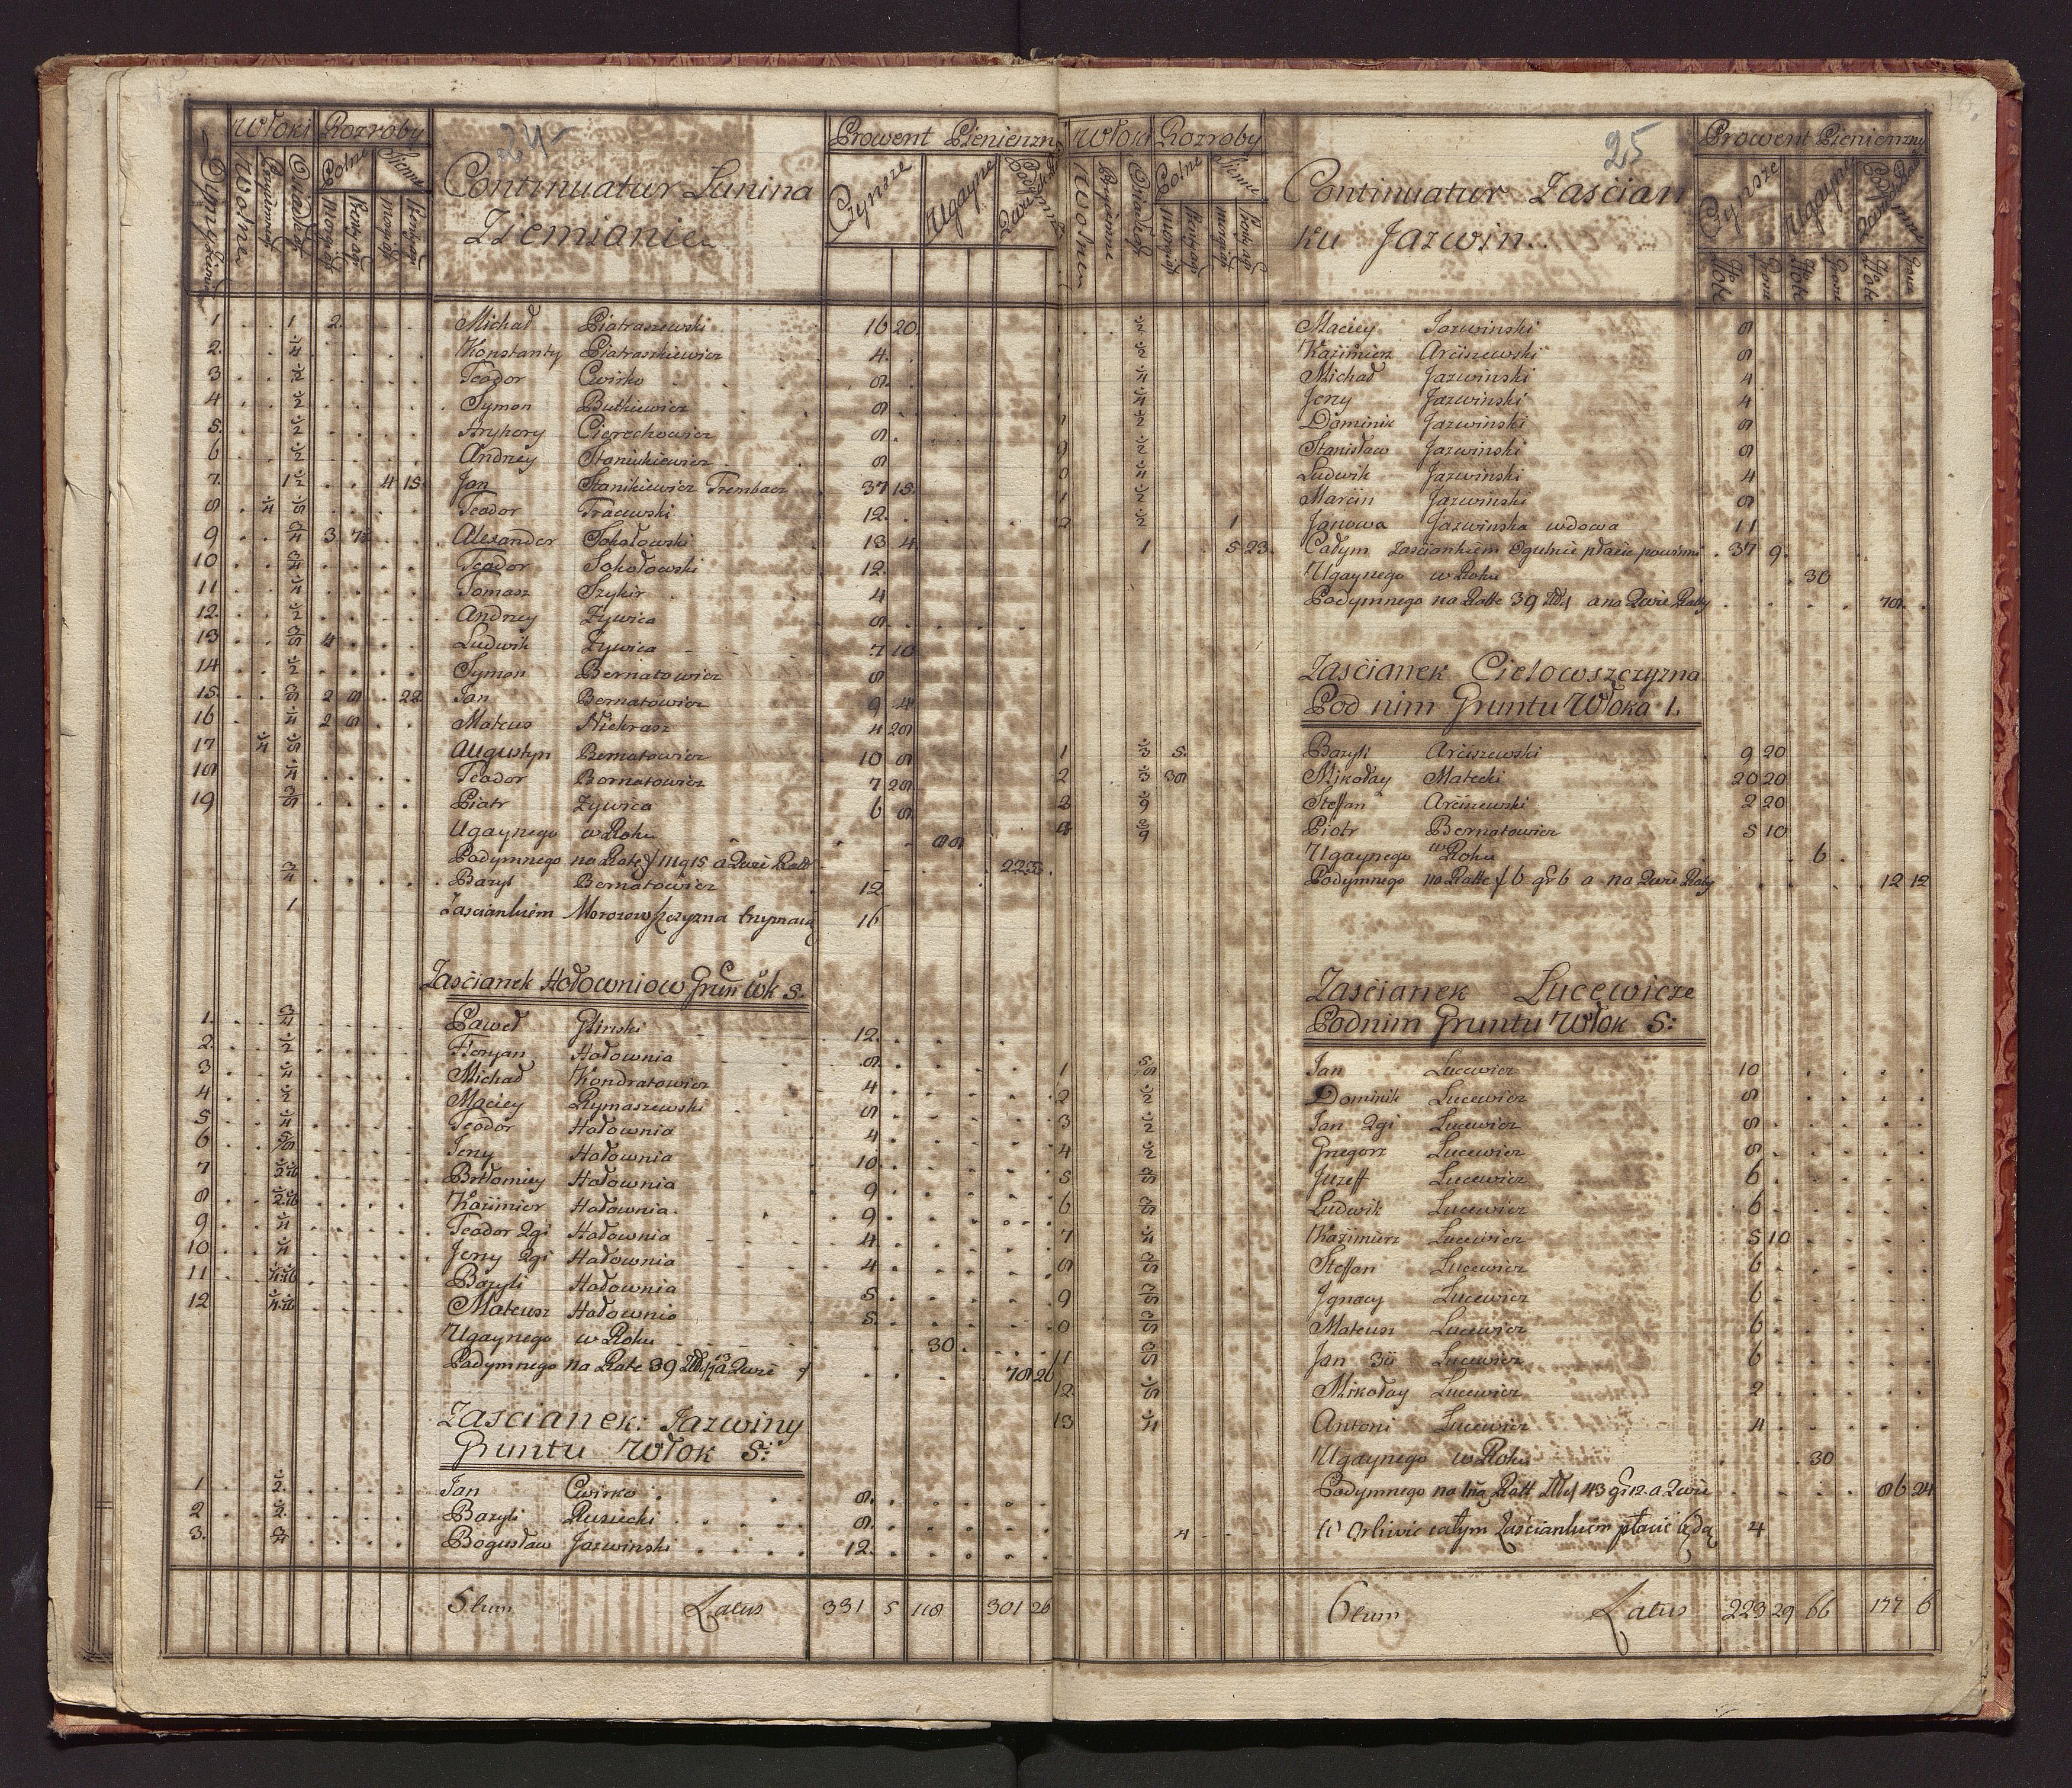 24
Włoki Rozroby Prowent Pienienzn
Continuatur Lunina
Ziemianie
Czynsze Ugayne
1 1 2 Michał Piatraszewski 16 20
2 Konstanty Piatraszkiewicz 4
3 Teodor Cwirko 8
4 Symon Butkiewicz 8
5 Hryhory Cierechowicz 8
6 Andrzey Staniukiewicz 8
7 4 15 Jan Stanikiewicz Trembacz 37 15
8 Teodor Tracewski 12
9 3 Alexander Sokołowski 13 4
10 Teodor Sokołowski 12
11 Tomasz Szykir 4
12 Andrzey Zywica 8
13 4 Ludwik Zywica 7 10
14 Symon Bernatowicz 8
15 2 8 22 Jan Bernatowicz 9 4
16 2 8 Mateus Niekrasz 4 28
17 Augustyn Bernatowicz 10 8
18 Teodor Bernatowicz 7 28
19 Piotr Zywica 6 8
Ugaynego w Roku 88
Podymnego na Rate 111 g 15 a Dwie Ratt 223
3/4 Bazyl Bernatowicz 12
1 Zasciankiem Morozowszczyzna trzymaią 16
Zaścianek Hołowniow Grun Włk 5.
1 3/4 Paweł Glinski 12
2 Floryan Hołownia 8
3 Michał Kondratowicz 4
4 Maciey Rymaszewski 8
5 Teodor Hołownia 4
6 5/8 Jerzy Hołownia 10
7 Bartłomiey Hołownia 9
8 Kazimierz Hołownia 9
9 Teodor 2gi Hołownia 4
10 Jerzy 2gi Hołownia 4
11 Bazyli Hołownia 5
12 Mateusz Hołownia 5
Ugaynego w Roku 30
Podymnego na Rate 39 a Dwie 78 26
Zascianek: Jazwiny
Gruntu Włok 5:
1 Jan Cwirko 8
2 Bazyli Rusiecki 8
3 Bogusław Jazwinski 12
5 lum Latus 331 5 118 301 26
25
Włoki Rozroby Prowent Pienienzny
Continuatur Zaścian
ku Jazwin
Czynsze Ugayne
Maciey Jazwinski 8
Kazimierz Arciszewski 8
Michał Jazwinski 4
Jerzy Jazwinski 4
Dominik Jazwinski 8
Stanisław Jazwinski 8
Ludwik Jazwinski 4
Marcin Jazwinski 8
1 Janowa Jazwinska wdowa 11
1 5 23 Całym Zasciankiem Ogulnie płacic powinni 37 9
Ugaynego w Roku 30
Podymnego na Ratte 39 a na Dwie Raty 78
Zaścianek Cielowszczyzna
Pod nim Gruntu Włoka 1.
1 5 Bazyli Arciszewski 9 20
2 38 Mikołay Małecki 20 20
3 Steffan Arciszewski 2 20
4 Piotr Bernatowicz 5 10
Ugaynego w Roku 6
Podymnego na Ratte f 6 gr 6 a na Dwie Raty 12 12
Zascianek Lucewicze
Pod nim Gruntu Włok 5:
1 Jan Lucewicz 10
2 Dominik Lucewicz 8
3 Jan 2gi Lucewicz 8
4 Gregorz Lucewicz 8
5 Juzeff Lucewicz 6
6 Ludwik Lucewicz 6
7 Kazimierz Lucewicz 5 10
8 Steffan Lucewicz 6
9 Jgnacy Lucewicz 6
0 Mateusz Lucewicz 6
11 Jan 3ii Lucewicz 6
12 Mikołay Lucewicz 2
13 Antoni Lucewicz 4
Ugaynego w Roku 30
Podymnego na Ratt 43 gr 12 a Dwie 86 24
4 całym Zasciankiem płacic będą 4
6 lum Latus 223 29 66 177 6